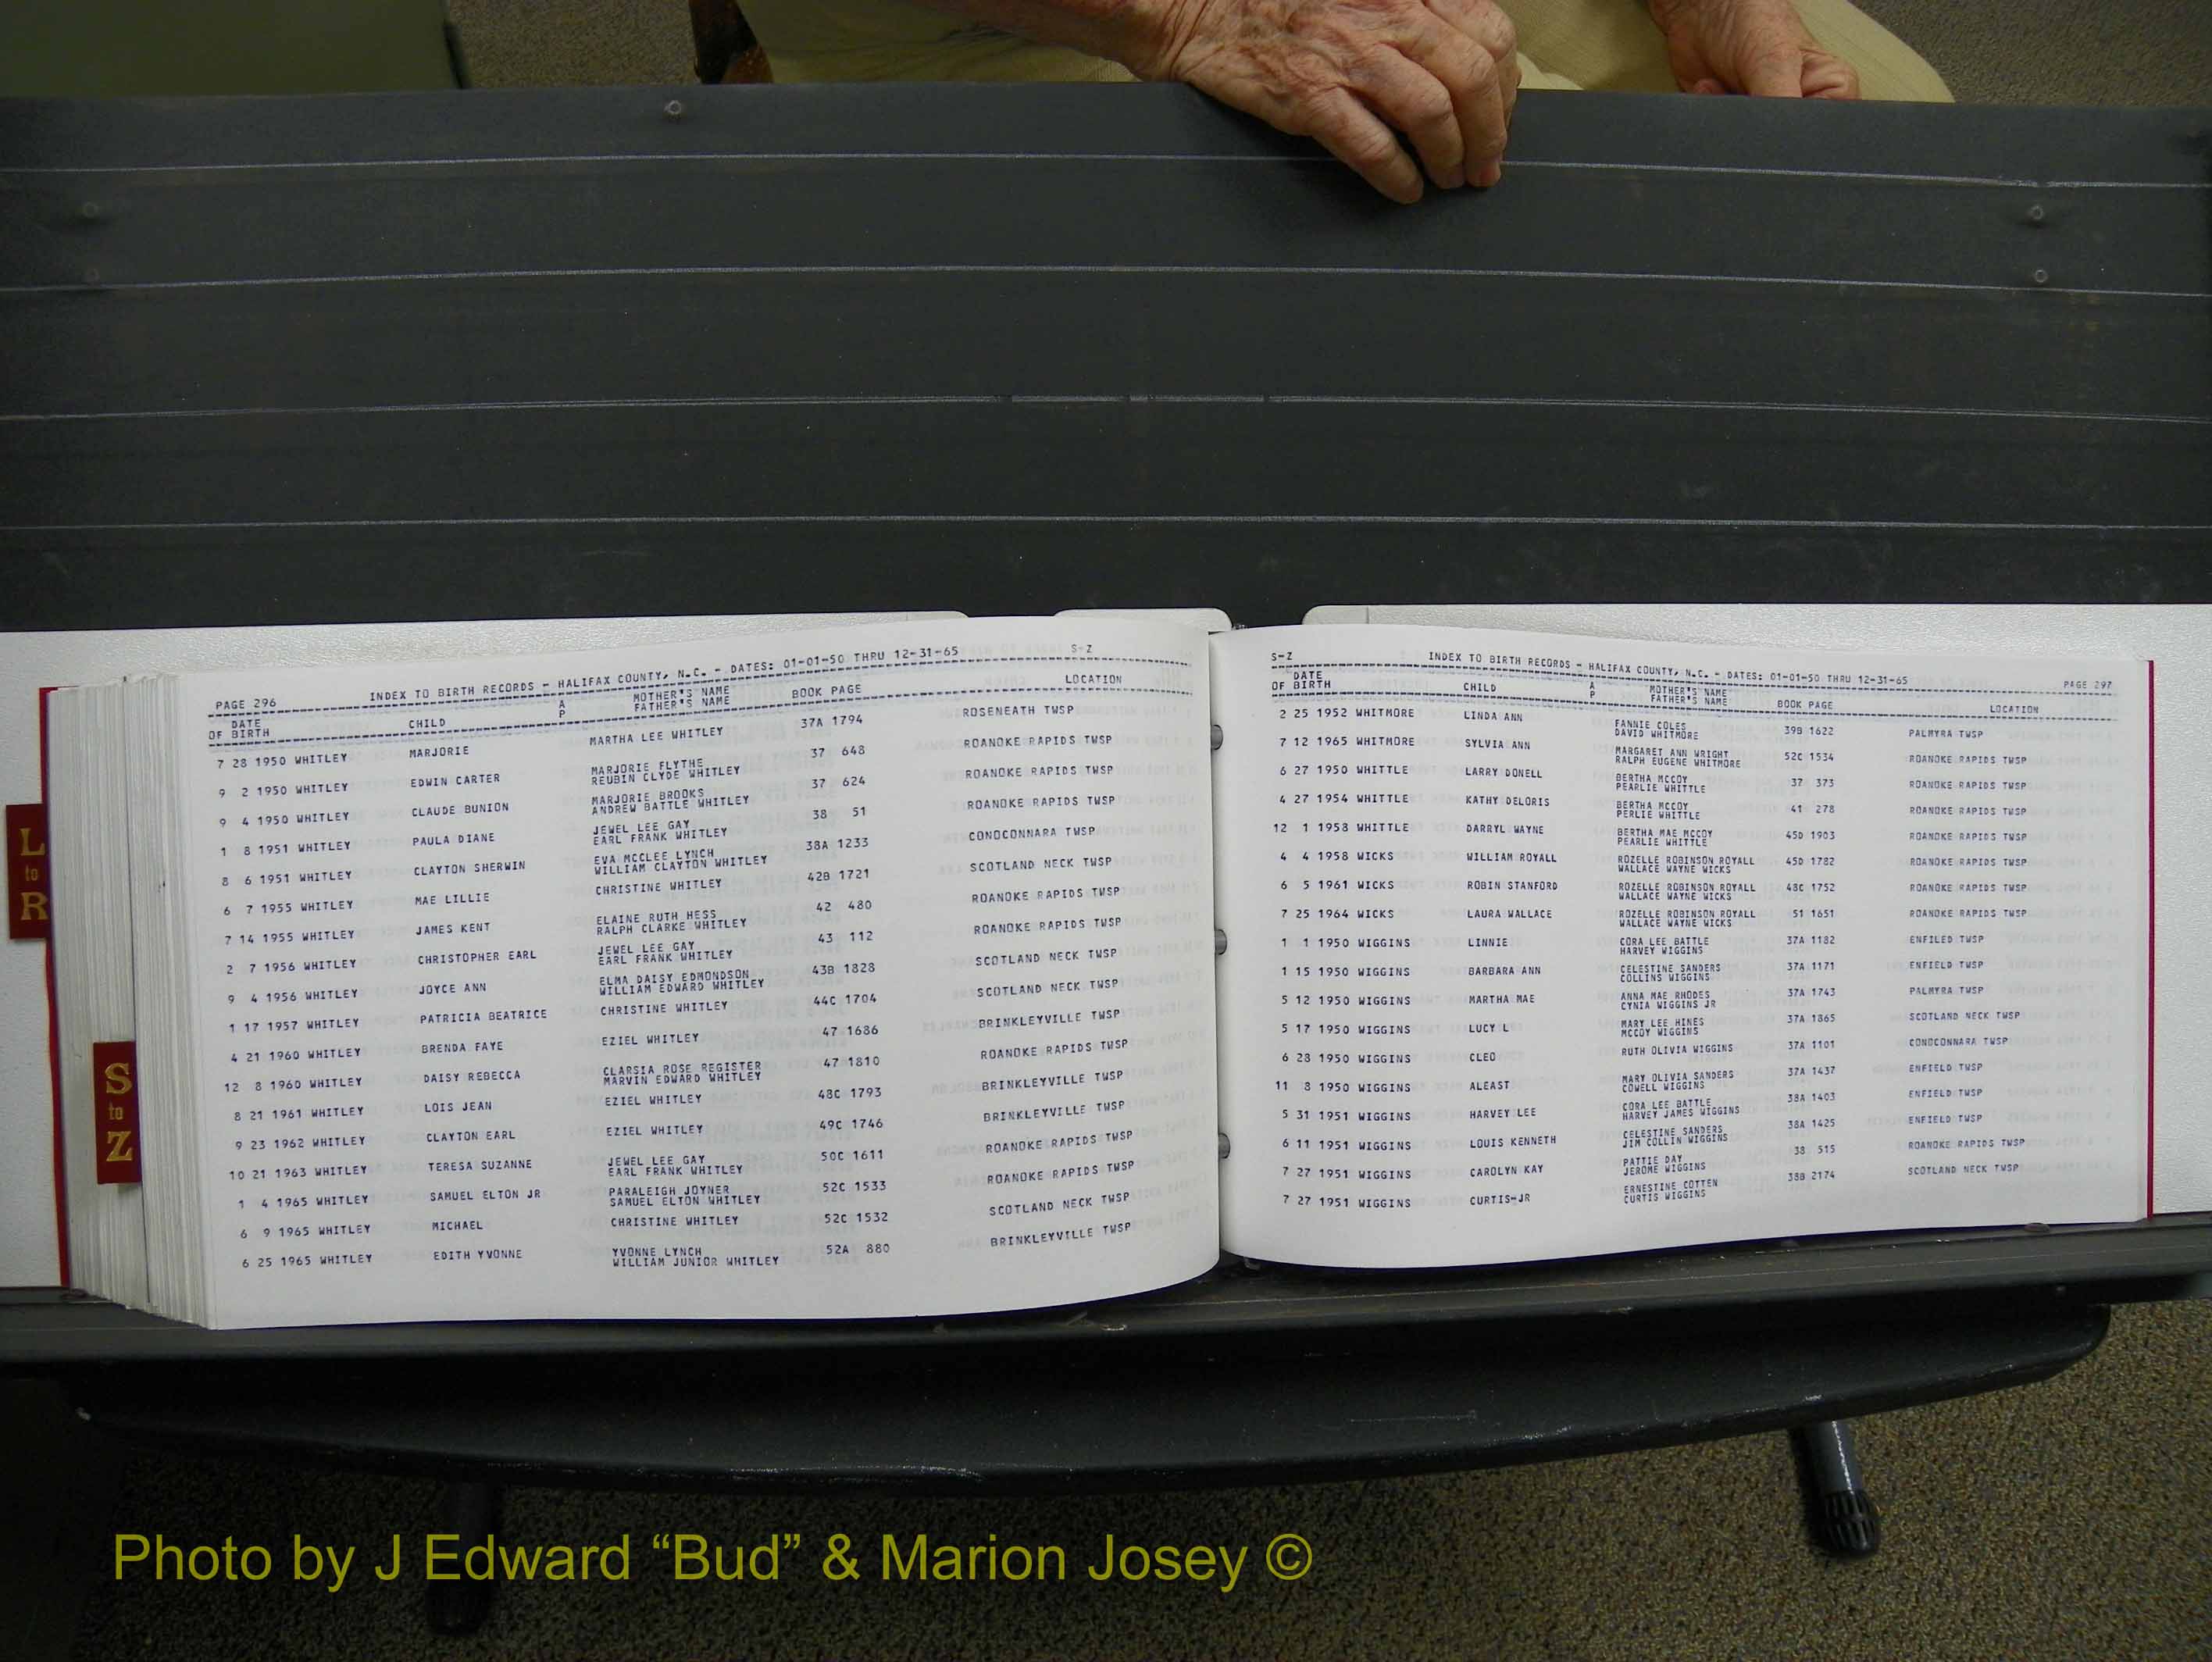 L
to
R
S
to
Z
PAGE 296 INDEX TO BIRTH RECORDS - HALIFAX COUNTY, N.C. - DATES: 01-01-50 THRU 12-31-65 S-Z
DATE OF BIRTH CHILD A P MOTHER'S NAME FATHER'S NAME BOOK PAGE LOCATION
7 28 1950 WHITLEY MARJORIE MARTHA LEE WHITLEY 37A 1794 ROSENEATH TWSP
9 2 1950 WHITLEY EDWIN CARTER MARJORIE FLYTHE REUBIN CLYDE WHITLEY 37 648 ROANOKE RAPIDS TWSP
9 4 1950 WHITLEY CLAUDE BUNION MARJORIE BROOKS ANDREW BATTLE WHITLEY 37 624 ROANOKE RAPIDS TWSP
1 8 1951 WHITLEY PAULA DIANE JEWEL LEE GAY EARL FRANK WHITLEY 38 51 ROANOKE RAPIDS TWSP
8 6 1951 WHITLEY CLAYTON SHERWIN EVA MCCLEE LYNCH WILLIAM CLAYTON WHITLEY 38A 1233 CONOCONNARA TWSP
6 7 1955 WHITLEY MAE LILLIE CHRISTINE WHITLEY 42B 1721 SCOTLAND NECK TWSP
7 14 1955 WHITLEY JAMES KENT ELAINE RUTH HESS RALPH CLARKE WHITLEY 42 480 ROANOKE RAPIDS TWSP
2 7 1956 WHITLEY CHRISTOPHER EARL JEWEL LEE GAY EARL FRANK WHITLEY 43 112 ROANOKE RAPIDS TWSP
9 4 1956 WHITLEY JOYCE ANN ELMA DAISY EDMONDSON WILLIAM EDWARD WHITLEY 43B 1828 SCOTLAND NECK TWSP
1 17 1957 WHITLEY PATRICIA BEATRICE CHRISTINE WHITLEY 44C 1704 SCOTLAND NECK TWSP
4 21 1960 WHITLEY BRENDA FAYE EZIEL WHITLEY 47 1686 BRINKLEYVILLE TWSP
12 8 1960 WHITLEY DAISY REBECCA CLARSIA ROSE REGISTER MARVIN EDWARD WHITLEY 47 1810 ROANOKE RAPIDS TWSP
8 21 1961 WHITLEY LOIS JEAN EZIEL WHITLEY 48C 1793 BRINKLEYVILLE TWSP
9 23 1962 WHITLEY CLAYTON EARL EZIEL WHITLEY 49C 1746 BRINKLEYVILLE TWSP
10 21 1963 WHITLEY TERESA SUZANNE JEWEL LEE GAY EARL FRANK WHITLEY 50C 1611 ROANOKE RAPIDS TWSP
1 4 1965 WHITLEY SAMUEL ELTON JR PARALEIGH JOYNER SAMUEL ELTON WHITLEY 52C 1533 ROANOKE RAPIDS TWSP
6 9 1965 WHITLEY MICHAEL CHRISTINE WHITLEY 52C 1532 SCOTLAND NECK TWSP
6 25 1965 WHITLEY EDITH YVONNE YVONNE LYNCH WILLIAM JUNIOR WHITLEY 52A 880 BRINKLEYVILLE TWSP
S-Z INDEX TO BIRTH RECORDS - HALIFAX COUNTY, N.C. - DATES: 01-01-50 THRU 12-31-65 PAGE 297
DATE OF BIRTH CHILD A P MOTHER'S NAME FATHER'S NAME BOOK PAGE LOCATION
2 25 1952 WHITMORE LINDA ANN FANNIE COLES DAVID WHITMORE 39B 1622 PALMYRA TWSP
7 12 1965 WHITMORE SYLVIA ANN MARGARET ANN WRIGHT RALPH EUGENE WHITMORE 52C 1534 ROANOKE RAPIDS TWSP
6 27 1950 WHITTLE LARRY DONELL BERTHA MCCOY PEARLIE WHITTLE 37 373 ROANOKE RAPIDS TWSP
4 27 1954 WHITTLE KATHY DELORIS BERTHA MCCOY PERLIE WHITTLE 41 278 ROANOKE RAPIDS TWSP
12 1 1958 WHITTLE DARRYL WAYNE BERTHA MAE MCCOY PEARLIE WHITTLE 45D 1903 ROANOKE RAPIDS TWSP
4 4 1958 WICKS WILLIAM ROYALL ROZELLE ROBINSON ROYALL WALLACE WAYNE WICKS 45D 1782 ROANOKE RAPIDS TWSP
6 5 1961 WICKS ROBIN STANFORD ROZELLE ROBINSON ROYALL WALLACE WAYNE WICKS 48C 1752 ROANOKE RAPIDS TWSP
7 25 1964 WICKS LAURA WALLACE ROZELLE ROBINSON ROYALL WALLACE WAYNE WICKS 51 1651 ROANOKE RAPIDS TWSP
1 1 1950 WIGGINS LINNIE CORA LEE BATTLE HARVEY WIGGINS 37A 1182 ENFILED TWSP
1 15 1950 WIGGINS BARBARA ANN CELESTINE SANDERS COLLINS WIGGINS 37A 1171 ENFIELD TWSP
5 12 1950 WIGGINS MARTHA MAE ANNA MAE RHODES CYNIA WIGGINS JR 37A 1743 PALMYRA TWSP
5 17 1950 WIGGINS LUCY L MARY LEE HINES MCCOY WIGGINS 37A 1865 SCOTLAND NECK TWSP
6 28 1950 WIGGINS CLEO RUTH OLIVIA WIGGINS 37A 1101 CONOCONNARA TWSP
11 8 1950 WIGGINS ALEAST MARY OLIVIA SANDERS COWELL WIGGINS 37A 1437 ENFIELD TWSP
5 31 1951 WIGGINS HARVEY LEE CORA LEE BATTLE HARVEY JAMES WIGGINS 38A 1403 ENFIELD TWSP
6 11 1951 WIGGINS LOUIS KENNETH CELESTINE SANDERS JIM COLLIN WIGGINS 38A 1425 ENFIELD TWSP
7 27 1951 WIGGINS CAROLYN KAY PATTIE DAY JEROME WIGGINS 38 515 ROANOKE RAPIDS TWSP
7 27 1951 WIGGINS CURTIS-JR ERNESTINE COTTEN CURTIS WIGGINS 38B 2174 SCOTLAND NECK TWSP
Photo by J Edward “Bud” & Marion Josey ©